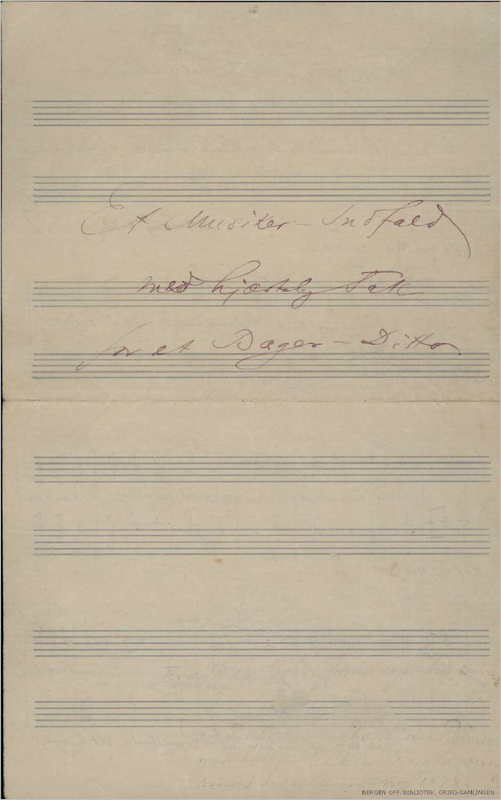 Et Musiker-Indfald
med hjertelig Tak
for et Bager-Ditto.
BERGEN OFF. BIBLIOTEK, GRIEG-SAMLINGEN